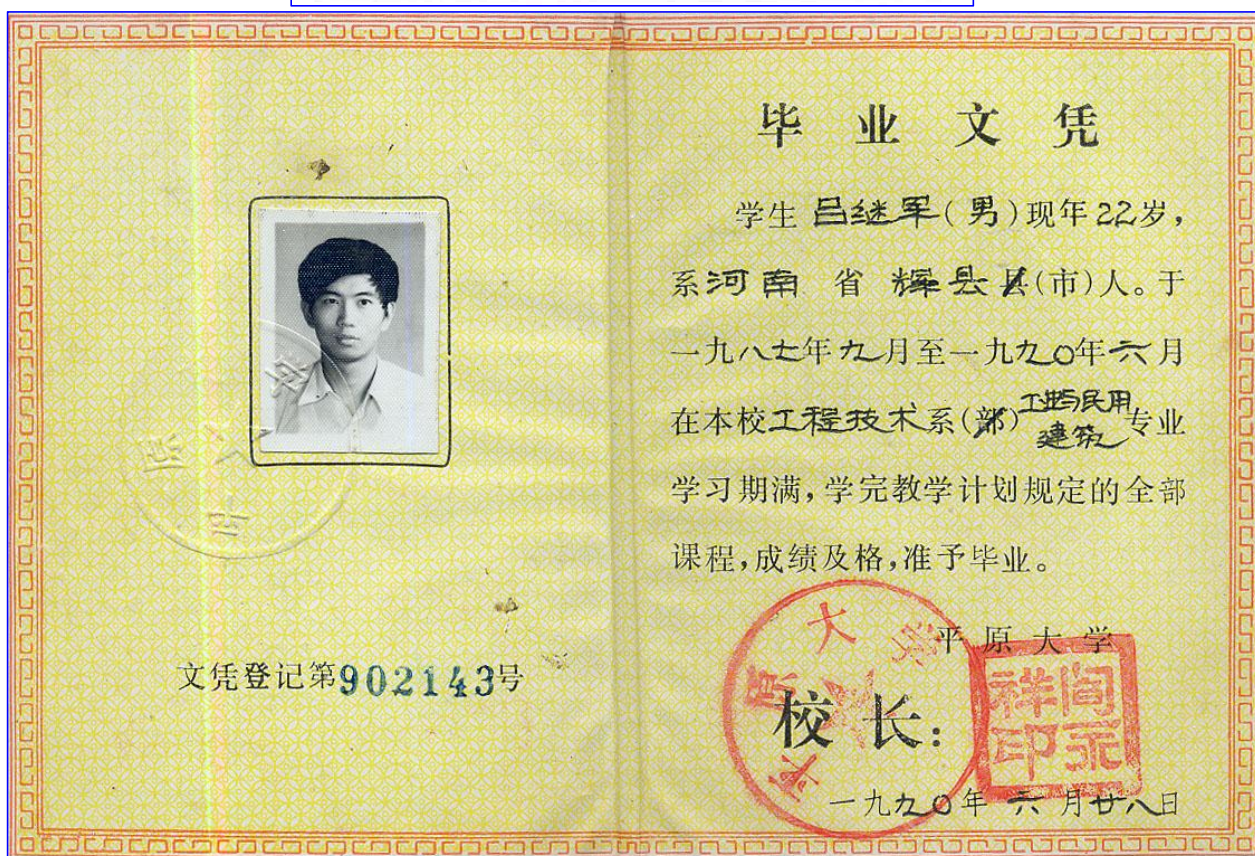 文凭登记第902143号
毕业文凭
学生吕继军(男)现年22岁,
系河南省辉县县(市)人。于
一九八七年九月至一九九〇年六月
在本校工程技术系(部)工业与民用建筑专业
学习期满,学完教学计划规定的全部
课程,成绩及格,准予毕业。
平原大学
校长:
平原大学
阎永祥印
一九九〇年六月廿八日